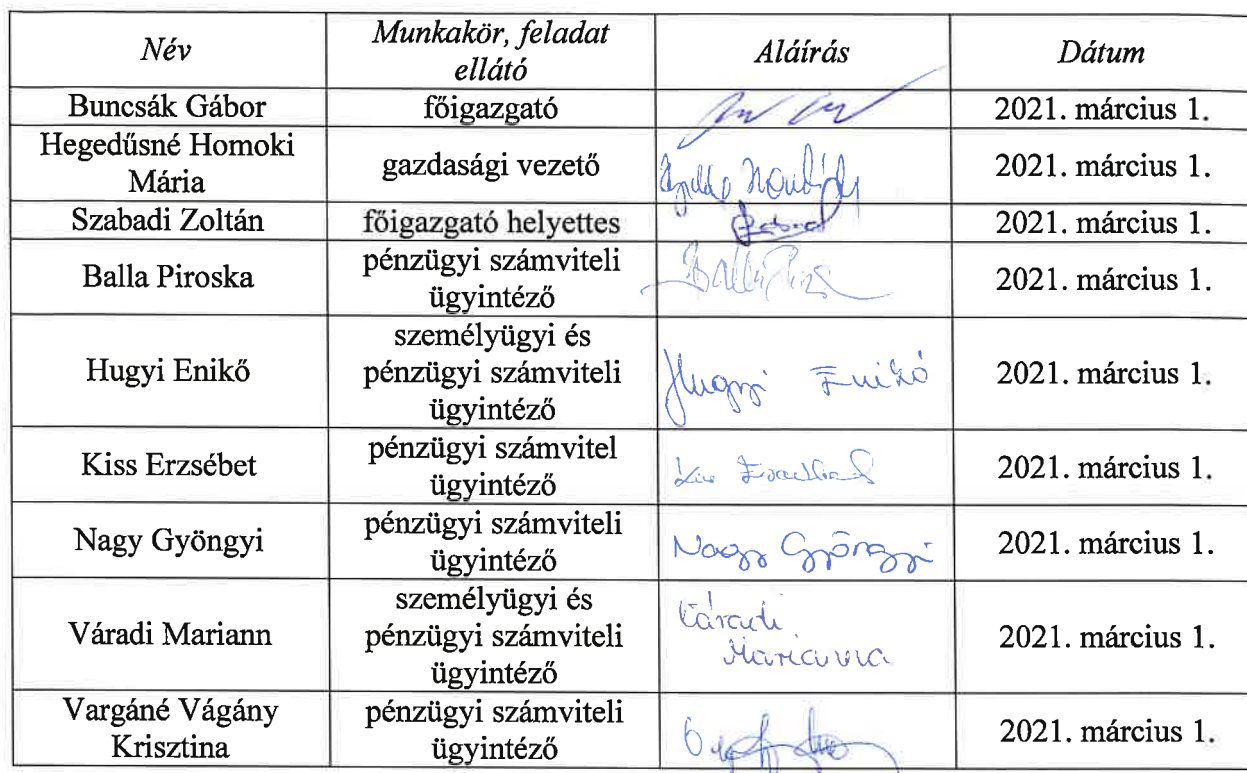 Név Munkakör, feladat ellátó Aláírás Dátum
Buncsák Gábor főigazgató 2021. március 1.
Hegedűsné Homoki Mária gazdasági vezető 2021. március 1.
Szabadi Zoltán főigazgató helyettes 2021. március 1.
Balla Piroska pénzügyi számviteli ügyintéző 2021. március 1.
Hugyi Enikő személyügyi és pénzügyi számviteli ügyintéző Hugyi Enikő 2021. március 1.
Kiss Erzsébet pénzügyi számvitel ügyintéző 2021. március 1.
Nagy Gyöngyi pénzügyi számviteli ügyintéző Nagy Gyöngyi 2021. március 1.
Váradi Mariann személyügyi és pénzügyi számviteli ügyintéző Váradi Marianna 2021. március 1.
Vargáné Vágány Krisztina pénzügyi számviteli ügyintéző 2021. március 1.